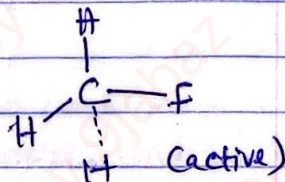 H
C F
H
H (active)